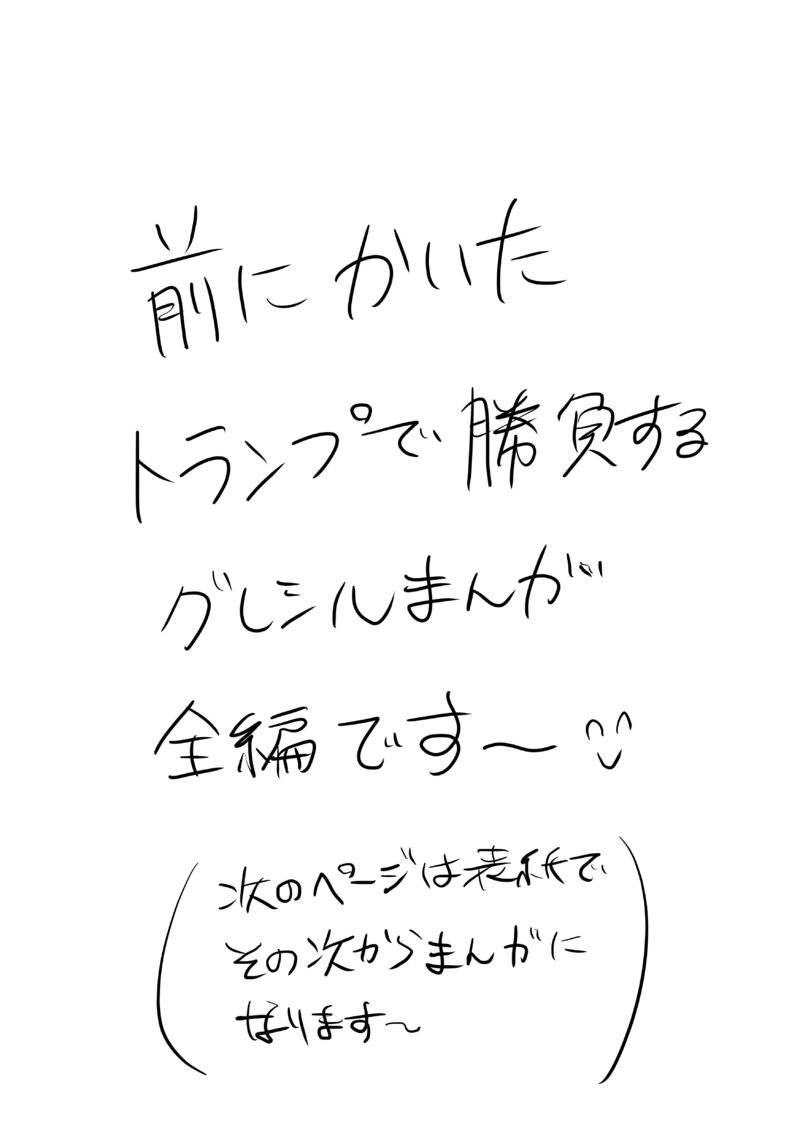 前にかいた
トランプで勝負する
グレシルまんが
全編です〜
(次のページは表紙で
その次からまんがに
なります〜)